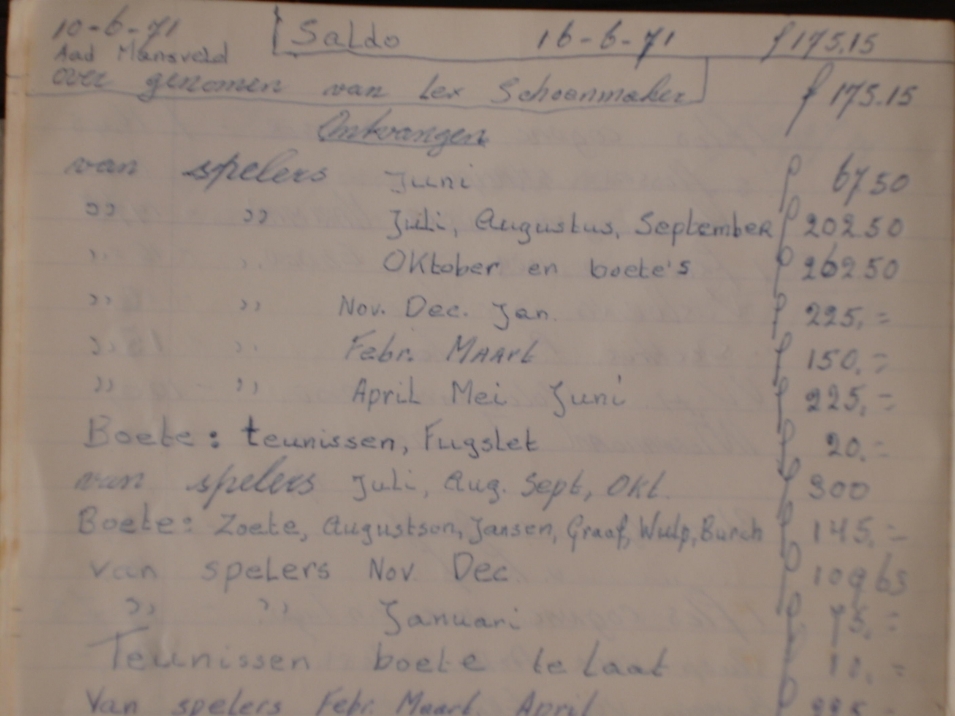 10-6-71 Saldo 16-6-71 f 175.15
Aad Mansveld
over genomen van Lex Schoenmaker f 175.15
Ontvangen
van spelers Juni f 67.50
,, ,, Juli, Augustus, September f 202.50
,, ,, Oktober en boete's f 262.50
,, ,, Nov. Dec. Jan. f 225,=
,, ,, Febr. Maart f 150,=
,, ,, April Mei Juni f 225,=
Boete: teunissen, Fugslet f 20,=
van spelers Juli, Aug. Sept, Okt. f 300
Boete: Zoete, Augustson, Jansen, Graaf, Wulp, Burch f 145,=
van spelers Nov Dec f 109.65
,, ,, Januari f 75,=
Teunissen boete te laat f 10,=
Van spelers Febr. Maart. April f 225.=